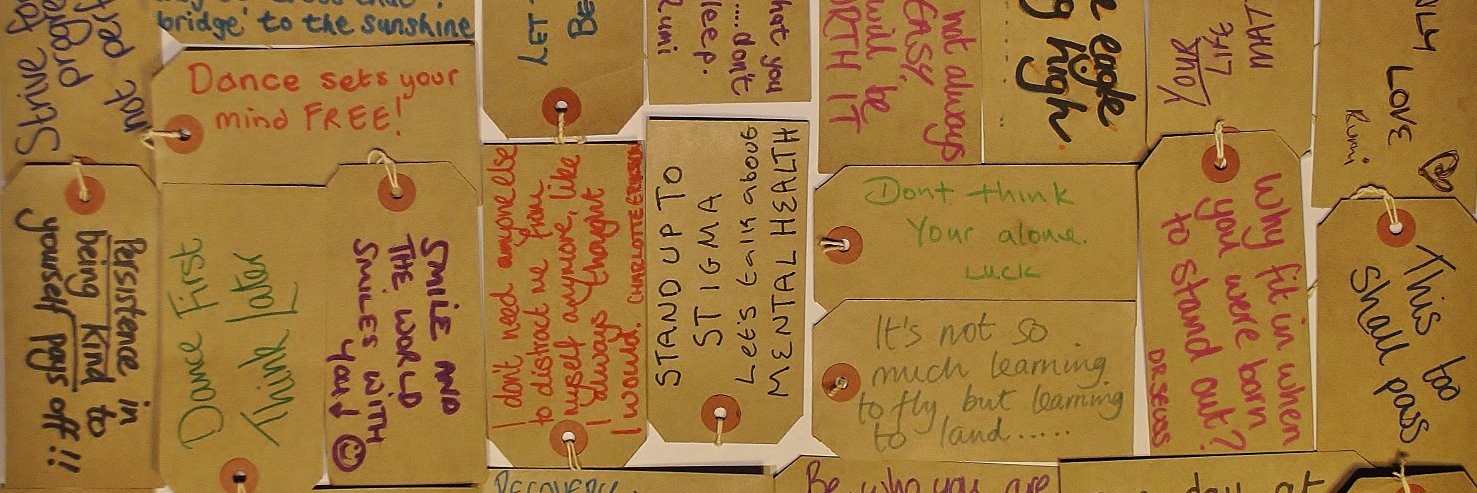 Strive for
progre
not per
bridge' to the sunshine
LET
BE
hat you
....don't
leep.
Rumi
not always
EASY,
will be
RTH IT
e eagle
g high.
WHAT
YOUR
NLY
LOVE
Rumi
Dance sets your
mind FREE!
Persistence in
being kind to
yourself pays off!!!
Dance First
Think Later
SMILE AND
THE WORLD
SMILES WITH
YOU
I don't need anyone else
to distract me from
myself anymore, like
I always thought
I would. CHARLOTTE ERIKSSON
STAND UP TO
STIGMA
Let's talk about
MENTAL HEALTH
Dont think
Your alone.
LUCK
It's not so
much learning
to fly, but learning
to land.....
Why fit in when
you were born
to stand out?
DR SEUSS
This too
Shall pass
RECOVERY
Be who you are
day at